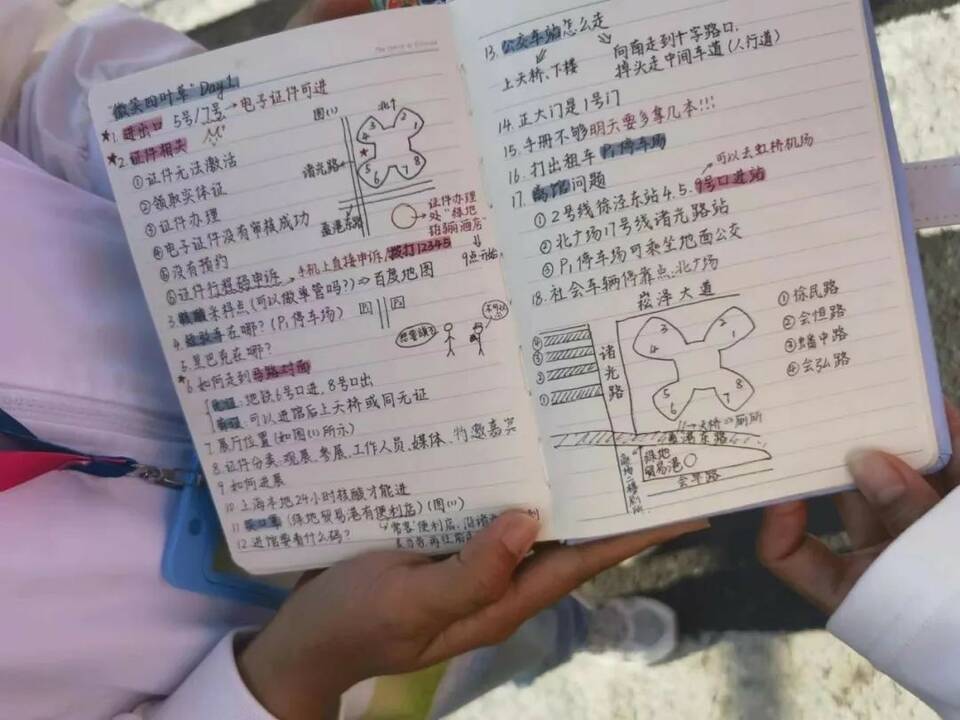 "微笑四叶草" Day1
★1. 进出口 5号/7号→电子证件可进
★2. 证件相关
①证件无法激活
②领取实体证
③证件办理
④电子证件没有审核成功
⑤没有预约
⑥证件行程码申诉→手机上直接申诉/拨打12345
图(1)
北↑
3
4
2
1
5
6
7
8
诸光路
盈港东路
证件办理
处"绿地
铂骊酒店"
9点开始
(可以做单营吗?)⇒百度地图
4. 在哪?(P1停车场)
5. 星巴克在哪?
四 四
★6. 如何走到马路对面
地铁6号口进,8号口出
可以进馆后上天桥或同无证
7. 展厅位置(如图(1)所示)
8. 证件分类:观展、参展、工作人员、媒体、特邀嘉宾
9. 如何进展
10. 上海本地24小时核酸才能进
11. 买口罩(绿地贸易港有便利店)(图(1))
12. 进馆要看什么码?
便利店,沿诸
13. 公交车站怎么走
上天桥、下楼
向南走到十字路口,
掉头走中间车道(人行道)
14. 正大门是1号门
15. 手册不够明天要多拿几本!!!
16. 打出租车 P1停车场
可以去虹桥机场
17. 离馆问题
①2号线徐泾东站4.5.9号口进站
②北广场17号线诸光路站
③P1停车场可乘坐地面公交
18. 社会车辆停靠点:北广场
崧泽大道
④
③
②
①
诸光路
3
4
2
1
5
6
8
7
①徐民路
②会恒路
③蟠中路
④会弘路
天桥⇒厕所
盈港东路
绿地
贸易港
会卓路